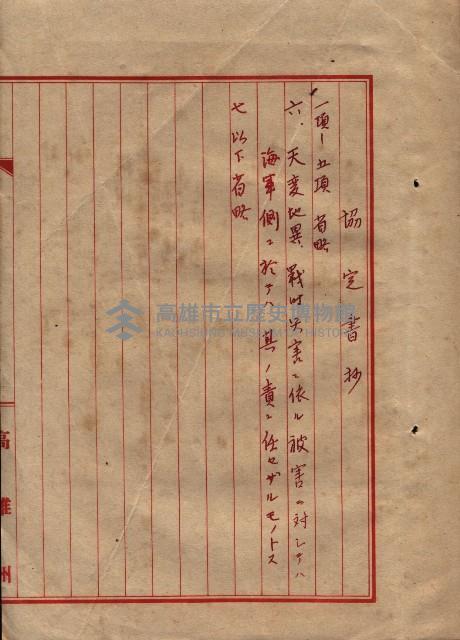 協定書抄
一項ー五項 省略
六、天変地異、戦時災害ニ依ル被害ニ対シテハ
海軍側ニ於テハ其ノ責ニ任セザルモノトス
七以下省略
高雄州
高雄市立歷史博物館
KAOHSIUNG MUSEUM OF HISTORY